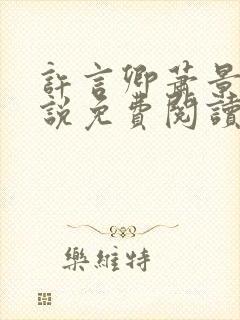 許言卿蕭景
說免費閱讀
樂維特